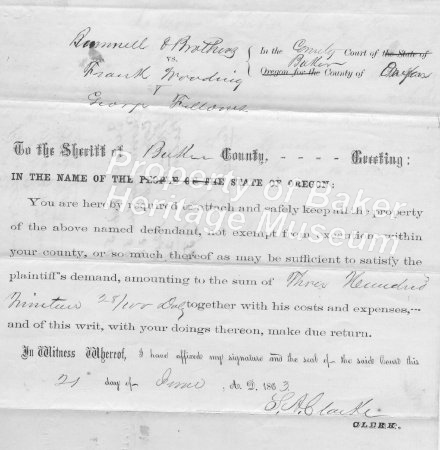 Rumnell & Brothers
vs.
Frank Wooding
&
George Fellows
In the County Court of the State of
Baker
Oregon for the County of
To the Sheriff of Baker County, - - - - Greeting:
IN THE NAME OF THE PEOPLE OF THE STATE OF OREGON:
You are hereby required to attach and safely keep all the property
of the above named defendant, not exempt from execution, within
your county, or so much thereof as may be sufficient to satisfy the
plaintiff's demand, amounting to the sum of Three Hundred
Nineteen 25/100 Dols together with his costs and expenses,—
and of this writ, with your doings thereon, make due return.
In Witness Whereof, I have affixed my signature and the seal of the said Court this
21 day of June A. D. 1863
E. A. Clarke
CLERK.
Property of Baker
Heritage Museum